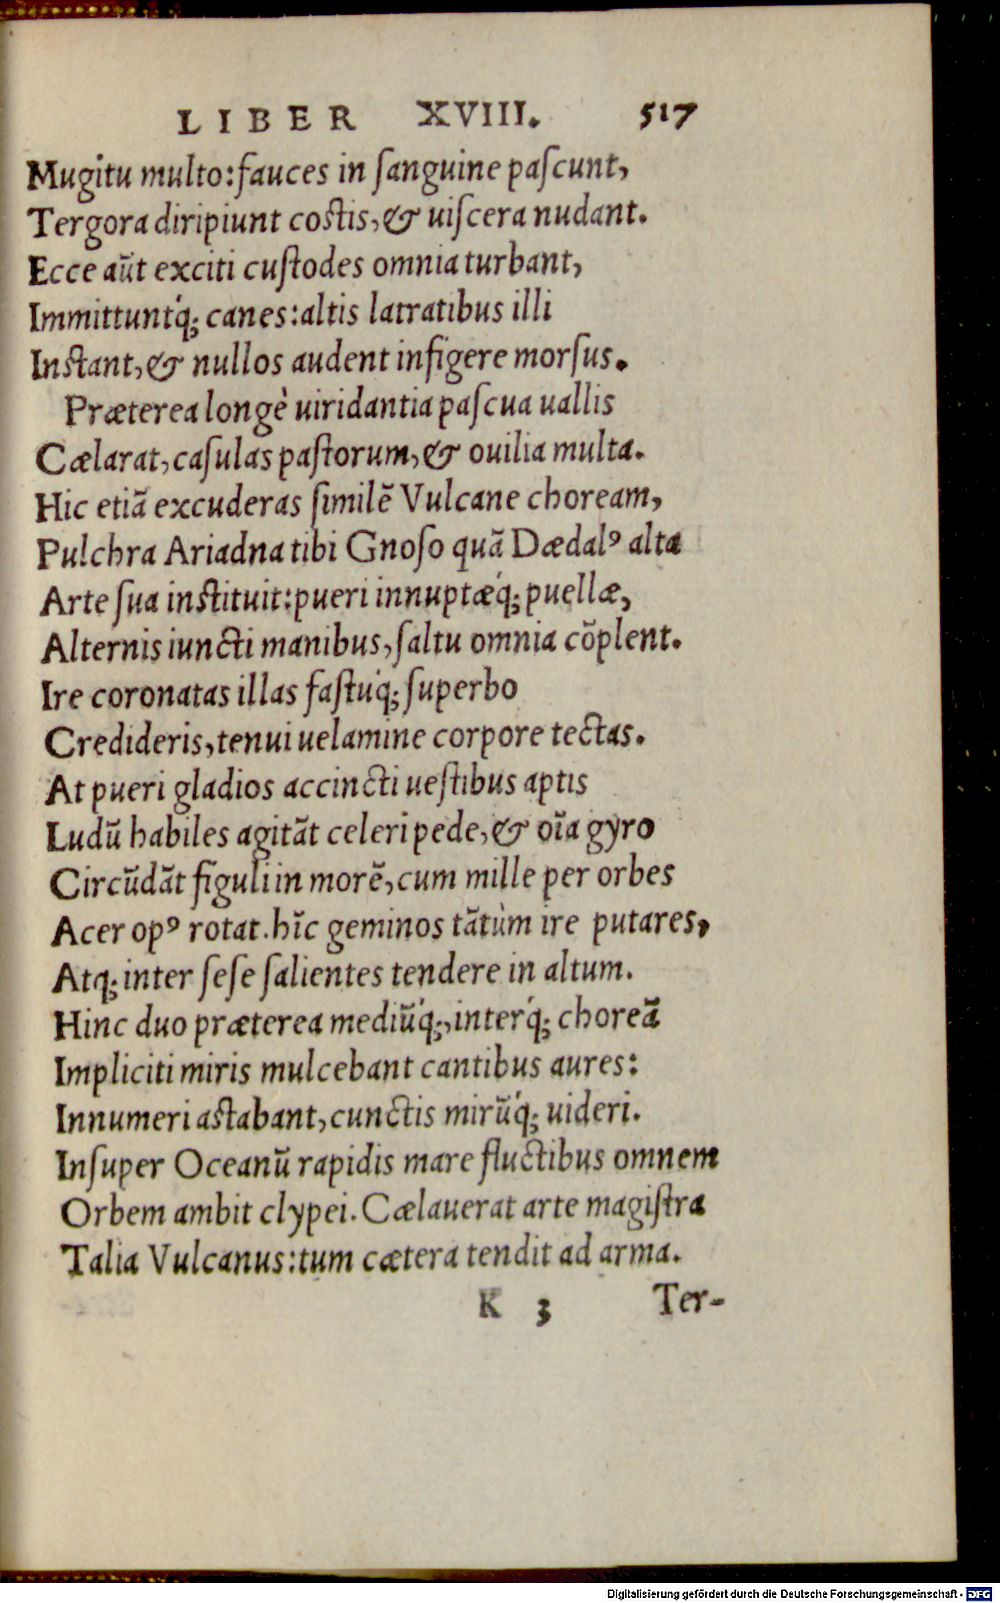 LIBER XVIII. 517
Mugitu multo: fauces in ſanguine paſcunt,
Tergora diripiunt coſtis, & uiſcera nudant.
Ecce aūt exciti cuſtodes omnia turbant,
Immittuntq́; canes: altis latratibus illi
Inſtant, & nullos audent infigere morſus.
Præterea longè uiridantia paſcua uallis
Cælarat, caſulas paſtorum, & ouilia multa.
Hic etiā excuderas ſimilē Vulcane choream,
Pulchra Ariadna tibi Gnoſo quā Dædalꝰ alta
Arte ſua inſtituit: pueri innuptæq́; puellæ,
Alternis iuncti manibus, ſaltu omnia cōplent.
Ire coronatas illas faſtuq́; ſuperbo
Credideris, tenui uelamine corpore tectas.
At pueri gladios accincti ueſtibus aptis
Ludū habiles agitāt celeri pede, & oīa gyro
Circūdāt figuli in morē, cum mille per orbes
Acer opꝰ rotat. hīc geminos tātùm ire putares,
Atq; inter ſeſe ſalientes tendere in altum.
Hinc duo præterea mediūq́;, interq́; choreā
Impliciti miris mulcebant cantibus aures:
Innumeri aſtabant, cunctis mirūq́; uideri.
Inſuper Oceanū rapidis mare fluctibus omnem
Orbem ambit clypei. Cælauerat arte magiſtra
Talia Vulcanus: tum cætera tendit ad arma.
K 3 Ter-
Digitalisierung gefördert durch die Deutsche Forschungsgemeinschaft - DFG